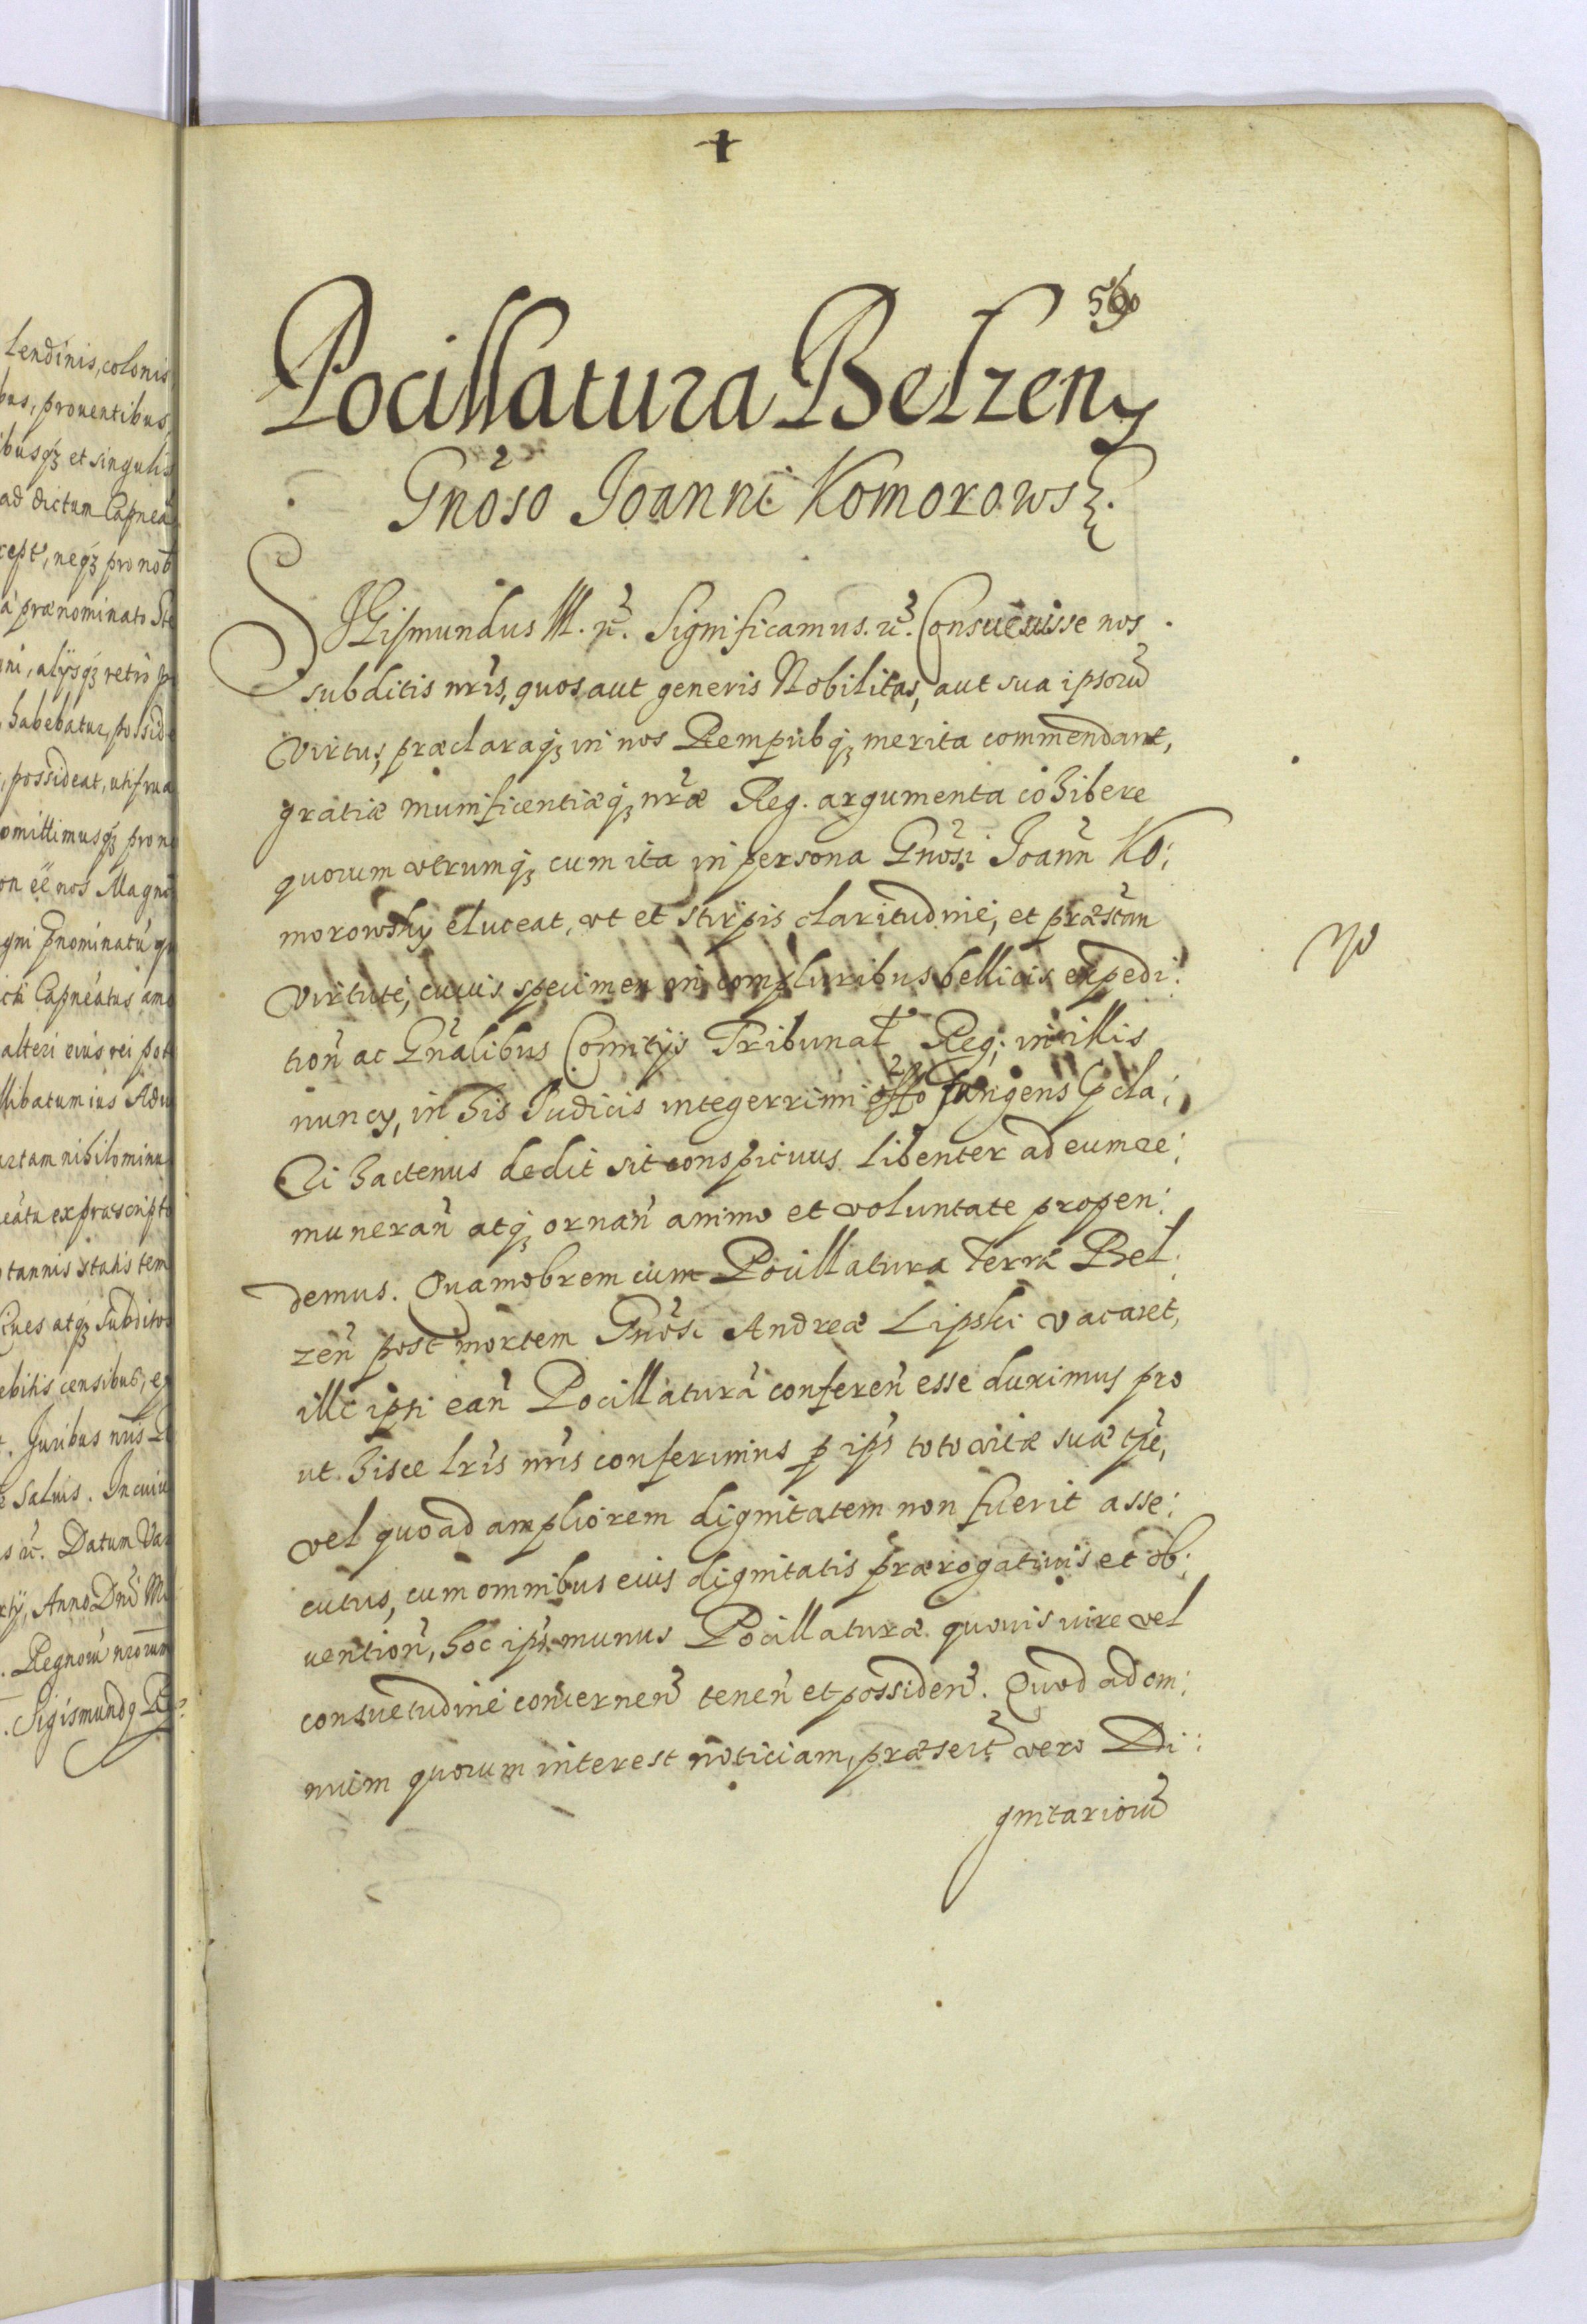 lendinis, colonis
bus, prouentibus,
ibusq́ȝ et singulis
ad dictum Capneã
cept', neq́ȝ pro nob
à prænominato Ste
ni, alÿsq́ȝ retrò p
habebatur, posside
, possideat, utifrua
omittimusq́ȝ pro no
on eẽ nos Magno
gni
cti Capneatus
alteri eius rei pot
llibatum ius Adu
artam nihilominus
eatu ex præscripto
tannis statis tem
Ciues atq́ȝ subditos
ebitis censibus, e
t. Juribus nris
e saluis. In cuius
s ꝛc̃. Datum Var
tÿ, Anno Dñi M
. Regnorũ nrorum
. Sigismundꝯ
✝
560
Pocillatura Belzen̄
Gnõso Joanni Komorowsķ.
SJGismundus III. ꝛc̃. Significamus. ꝛc̃. Consueuisse nos
subditis nr̃is, quos aut generis Nobilitas, aut sua ipsorũ
Virtus, præclaraq́ȝ in nos Rempubq́ȝ merita commendant,
gratiæ munificentiæq́ȝ nr̃æ Reg. argumenta cohibere
quorum vtrumq́ȝ cum ita in persona Gnõsi Joañn Ko:
morowsky eluceat, vt et stirpis claritudine, et præstan
virtute, cuius specimen in compluribus bellicis expedi:
tion̄ ac Gñalibus Comitÿs Tribunał Reg; in illis
nuncÿ, in his Judicis integerrimi offo fungens ꝑcla:
ri hactenus dedit sit conspicuus. Libenter ad eum re:
muneran̄ atq́ȝ ornan̄ animo et voluntate propen:
demus. Quamobrem cum Pocillatura Terræ Bel:
zen̄ post mortem Gnõsi Andreæ Lipski vacaret,
illi ipsi ean̄ Pocillaturã conferen̄ esse duximus pro
ut hisce lr̃is nr̃is conferimus ꝑ ip̃s toto vitæ suæ tp̃e,
vel quoad ampliorem dignitatem non fuerit asse:
cutus, cum omnibus eius dignitatis prærogatiuis et ob:
uention̄, hoc ip̃s munus Pocillaturæ quouis iure vel
consuetudine concernen̄ tenen̄ et possiden̄. Quod ad om:
nium quorum interest noticiam, præsert̃ vero Di:
gnitariorũ